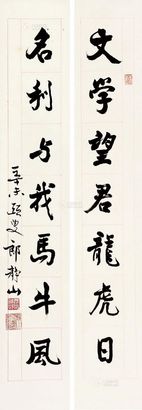 文学望君龍虎日
名利与我馬牛風
辛未 郎静山